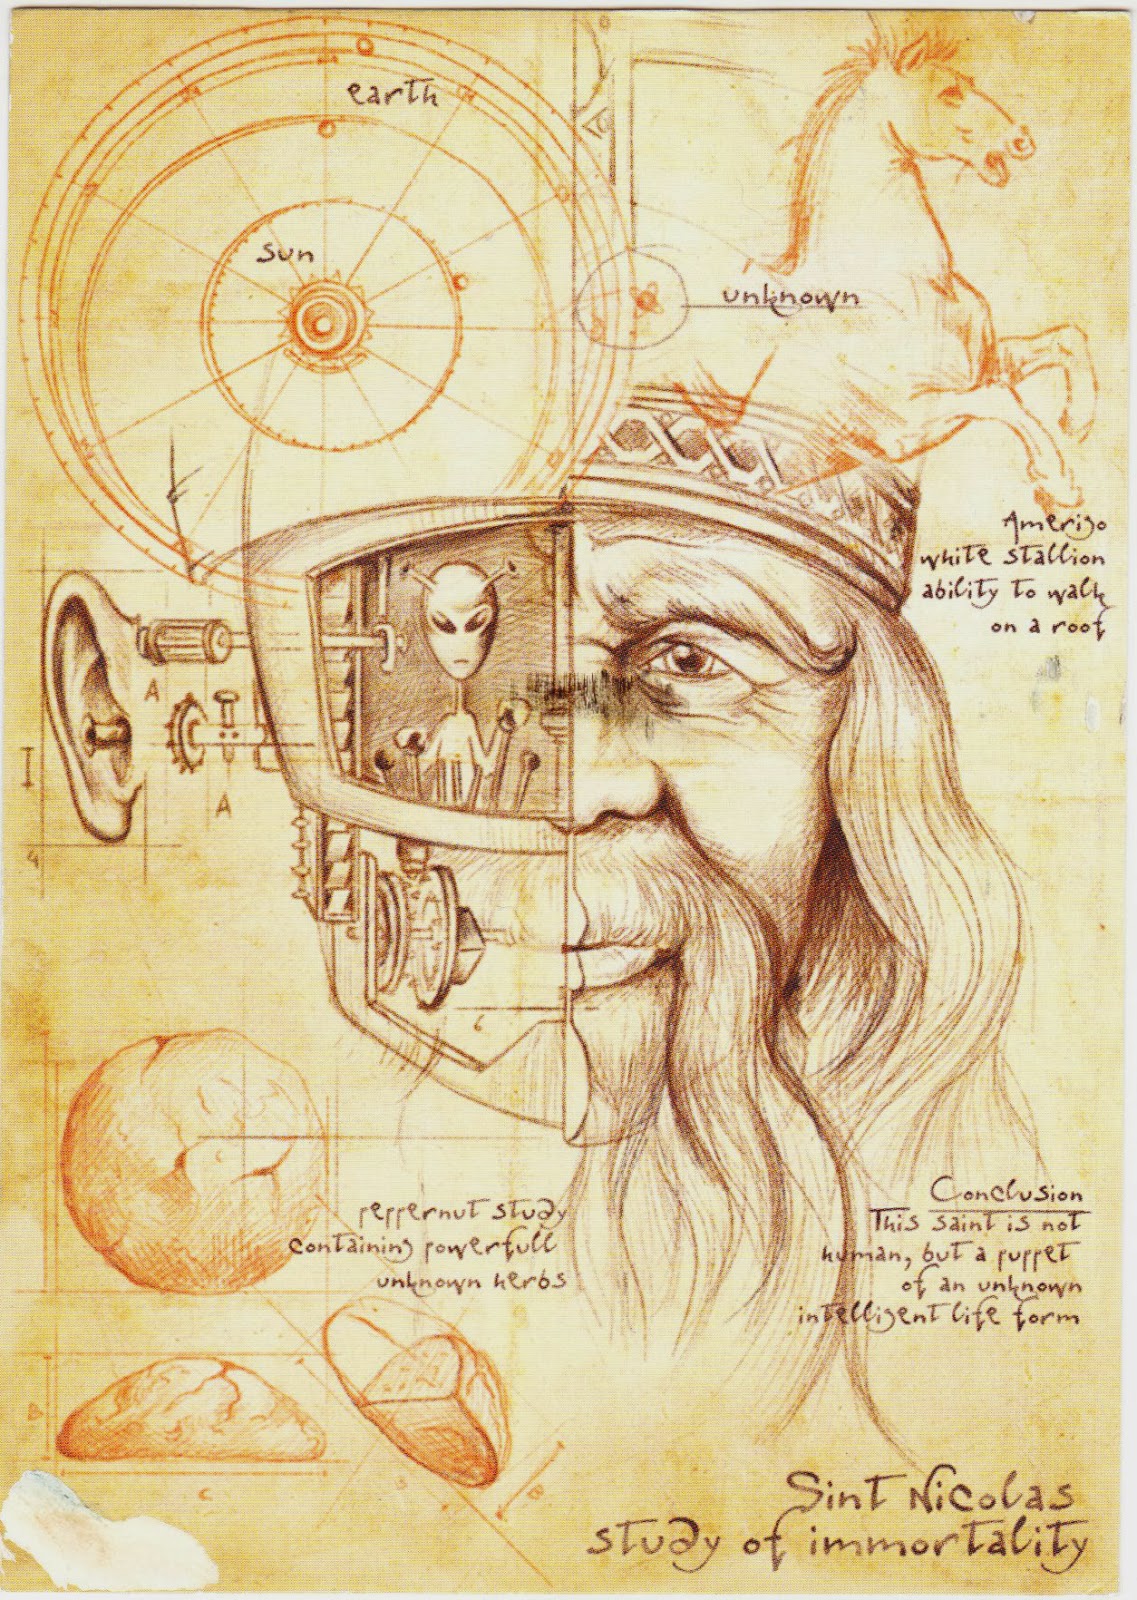 earth
sun
unknown
Amerigo
white stallion
ability to walk
on a roof
A
A
peppernut study
containing powerfull
unknown herbs
Conclusion
This saint is not
human, but a puppet
of an unknown
intelligent life form
B
Sint Nicolas
study of immortality